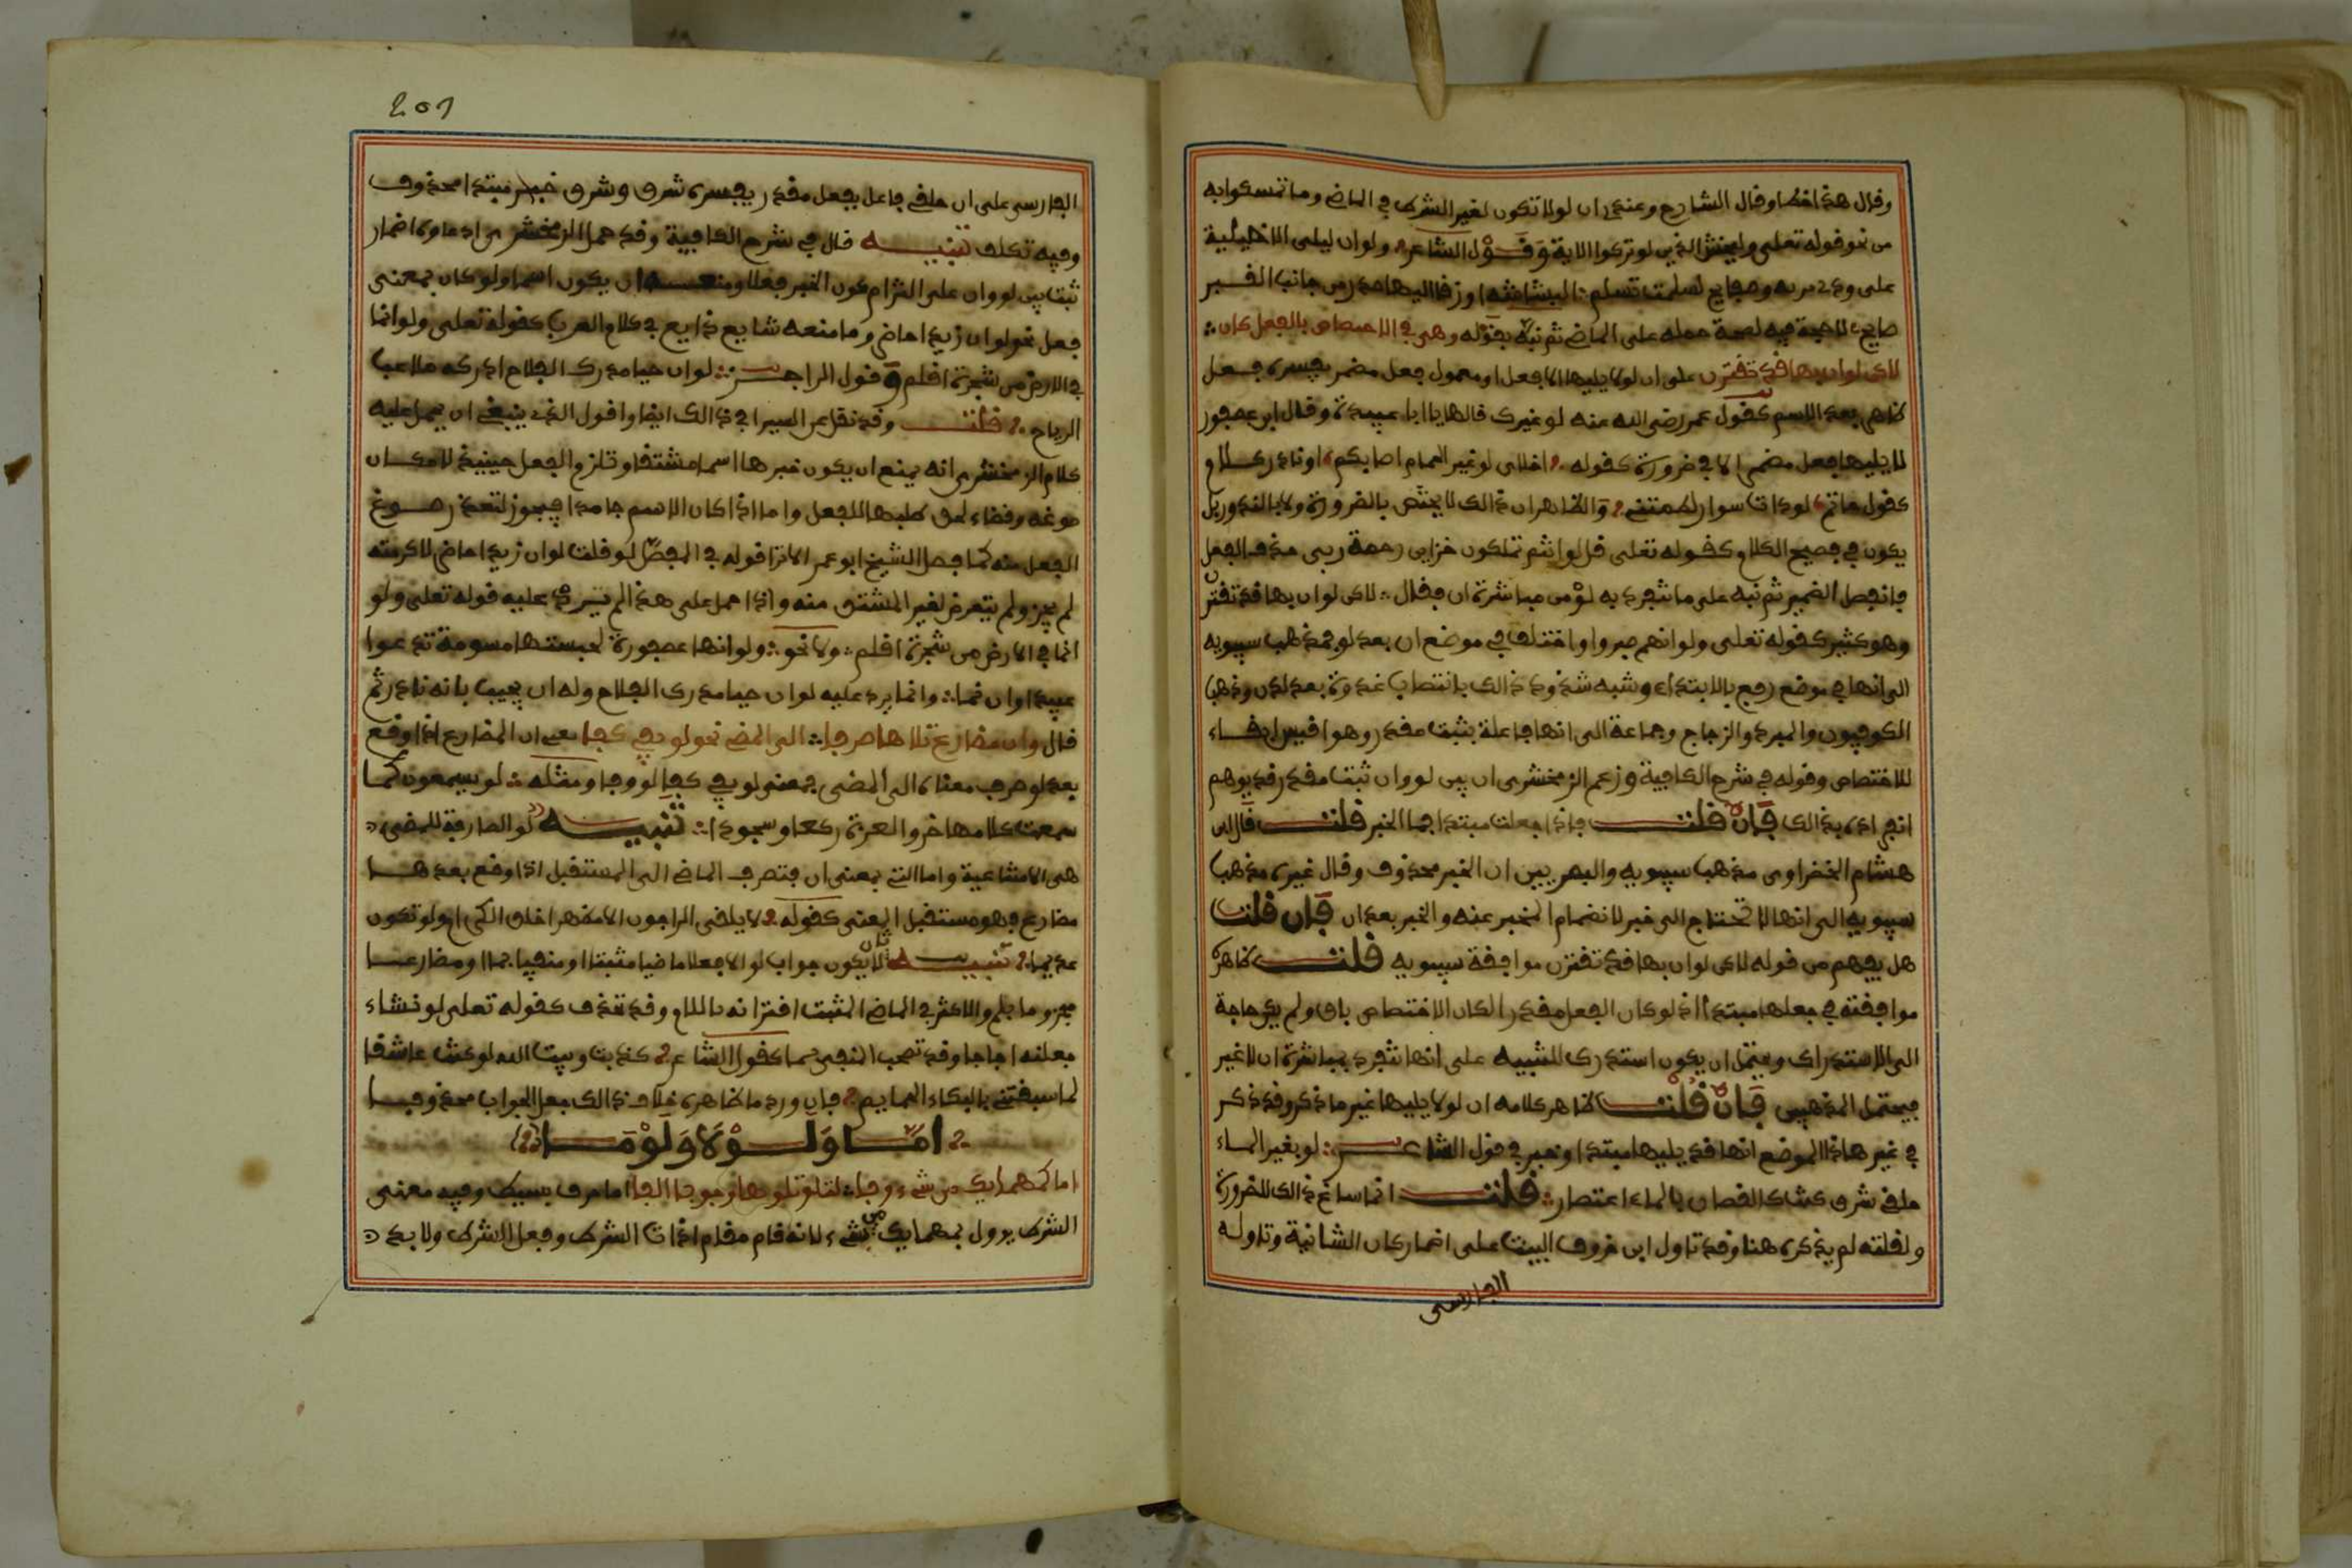 وقال هذا خطا وقال الشارح وعندي ان لو لا تكون لغير الشرط في الماضي وما تمسكوا به
من نحو قوله تعلى وليخش الذين لو تركوا الاية وقول الشاعر ولو ان ليلى الاخيلية
على ودوني تربة وصفايح لسلمت تسليم البشاشة اوزقا اليها صدى من جانب القبر
صايح لا حجة فيه لصحة حمله على الماضي ثم نبه بقوله وهي في الاختصاص بالفعل كان
لاكن لو ان بها قد تقترن على ان لو لا يليها الا فعل او معمول فعل مضمر يفسره فعل
ظاهر بعد الاسم كقول عمر رضي الله عنه لو غيرك قالها يا ابا عبيدة وقال ابن عصفور
لا يليها فعل مضمر الا في ضرورة كقوله اخلاي لو غير الحمام اصابكم او نادر كلام
كقول حاتم لو ذات سوار لطمتني والظاهر ان ذالك لا يختص بالضرورة ولا بالندور بل
يكون في فصيح الكلام كقوله تعلى قل لو انتم تملكون خزاين رحمة ربي حذف الفعل
فانفصل الضمير ثم نبه على ما تنفرد به لو من مباشرة ان فقال لاكن لو ان بها قد تقترن
وهو كثير كقوله تعلى ولو انهم صبروا واختلف في موضع ان بعد لو فمذهب سيبويه
الى انها في موضع رفع بالابتداء وشبه شذوذ ذالك بانتصاب غدوة بعد لدن وذهب
الكوفيون والمبرد والزجاج وجماعة الى انها فاعلة بثبت مقدر وهو اقيس ابقاء
للاختصاص وقوله في شرح الكافية وزعم الزمخشري ان بين لو وان ثبت مقدر قد يوهم
انفراده بذالك فان قلت فاذا جعلت مبتدا فما الخبر قلت قال ابن
هشام الخضراوي مذهب سيبويه والبصريين ان الخبر محذوف وقال غيره مذهب
سيبويه الى انها لا تحتاج الى خبر لانضمام المخبر عنه والخبر بعد ان فان قلت
هل يفهم من قوله لاكن لو ان بها قد تقترن موافقة سيبويه قلت ظاهره
موافقته في جعلها مبتدا اذ لو كان الفعل مقدرا لكان الاختصاص باق ولم يكن حاجة
الى الاستدراك ويحتمل ان يكون استدرك للتنبيه على انها تنفرد بمباشرة ان لا غير
فيحتمل المذهبين فان قلت ظاهر كلامه ان لو لا يليها غير ما ذكر وقد ذكر
في غير هاذا الموضع انها قد يليها مبتدا وخبر في قول الشاعر لو بغير الماء
حلقي شرق كنت كالغصان بالماء اعتصار قلت انما ساغ ذالك للضرورة
ولقلته لم يذكره هنا وقد تاول ابن خروف البيت على اضمار كان الشانية وتاوله
الفارسي
201
الفارسي على ان حلقي فاعل بفعل مقدر يفسره شرق وشرق خبر مبتدا محذوف
وفيه تكلف تنبيه قال في شرح الكافية وقد حمل الزمخشري ادعاوه اضمار
ثبت بين لو وان على التزام كون الخبر فعلا ومنعه ان يكون اسما ولو كان بمعنى
فعل نحو لو ان زيدا حاضر وما منعه شايع ذايع في كلام العرب كقوله تعلى ولو انما
في الارض من شجرة اقلم وقول الراجز لو ان حيا مدرك الفلاح ادركه ملاعب
الرماح قلت وقد نقل عن السيرافي ذالك ايضا واقول الذي ينبغي ان يحمل عليه
كلام الزمخشري انه يمنع ان يكون خبرها اسما مشتقا وتلزم الفعل حينيذ لامكان
صوغه وقضاء لحق طلبها للفعل واما اذا كان الاسم جامدا فيجوز لتعذر صوغ
الفعل منه كما فصل الشيخ ابو عمر الا ترا قوله في المفصل لو قلت لو ان زيدا حاضر لاكرمته
لم يجز ولم يتعرض لغير المشتق منه واذا حمل على هذا لم يرد عليه قوله تعلى ولو
انما في الارض من شجرة اقلم ولا نحو ولو انها عصفورة لحسبتها مسومة تدعوا
عبيدا وان نما وانما يرد عليه لو ان حيا مدرك الفلاح وله ان يجيب بانه نادر ثم
قال وان مضارع تلاها صرفا الى المضي نحو لو يفي كفا يعني ان المضارع اذا وقع
بعد لو صرف معناه الى المضي فمعنى لو يفي كفا لو وفا ومثله لو يسمعون كما
سمعت كلامها خروا لعزة ركعا وسجودا تنبيه لو الصارفة للمضي
هي الامتناعية واما التي بمعنى ان فتصرف الماضي الى المستقبل اذا وقع بعدها
مضارع فهو مستقبل المعنى كقوله لا يلفى الراجون الا مظهرا خلق الكرام ولو تكون
عديما تنبيه لا يكون جواب لو الا فعلا ماضيا مثبتا او منفيا بما او مضارعا
مجزوما بلم والاكثر في الماضي المثبت اقترانه باللام وقد تحذف كقوله تعلى لو نشاء
جعلنه اجاجا وقد تصحب المنفي بما كقول الشاعر كذبت وبيت الله لو كنت عاشقا
لما سبقتني بالبكاء الحمايم فان ورد ما ظاهره خلاف ذالك جعل الجواب محذوفا
اما ولولا ولوما
اما كمهما يك من شيء وفا لتلو تلوها وجوبا الفا اما حرف بسيط وفيه معنى
الشرط يوول بمهما يك من شيء لانه قام مقام اذات الشرط وفعل الشرط ولا بد